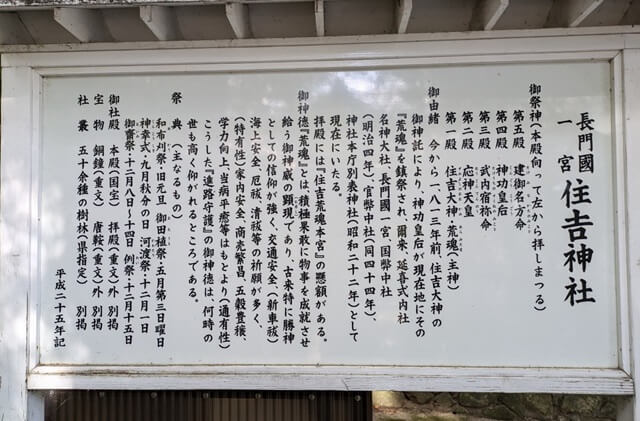 長門國
一宮 住吉神社
御祭神(本殿向って左から拝しまつる)
第五殿 建御名方命
第四殿 神功皇后
第三殿 武内宿祢命
第二殿 応神天皇
第一殿 住吉大神・荒魂(主神)
御由緒 今から一、八一三年前、住吉大神の
御神託により、神功皇后が現在地にその
『荒魂』を鎮祭され、爾来、延喜式内社
名神大社、長門國一宮、国幣中社
(明治四年)官幣中社(同四十四年)、
神社本庁別表神社(昭和二十二年)として
現在にいたる。
拝殿には『住吉荒魂本宮』の懸額がある。
御神徳『荒魂』とは、積極果敢に物事を成就させ
給う御神威の顕現であり、古来特に勝神
としての信仰が強く、交通安全(新車祓)
海上安全、厄祓、清祓等の祈願が多く、
(特有性)家内安全、商売繁昌、五穀豊穣、
学力向上、当病平癒等はもとより(通有性)
こうした『道路守護』の御神徳は、何時の
世も高く仰がれるところである。
祭典(主なるもの)
和布刈祭・旧元旦 御田植祭・五月第三日曜日
神幸式・九月秋分の日 河渡祭・十二月一日
御齋祭・十二月八日〜十四日 例祭・十二月十五日
御社殿 本殿(国宝) 拝殿(重文)外 別掲
宝物 銅鐘(重文) 唐鞍(重文)外 別掲
社叢 五十余種の樹林(県指定) 別掲
平成二十五年記